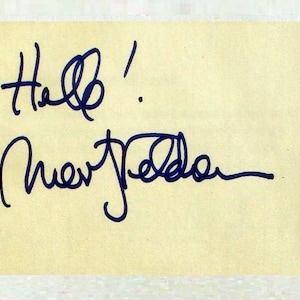 Hello!
Marty Feldman